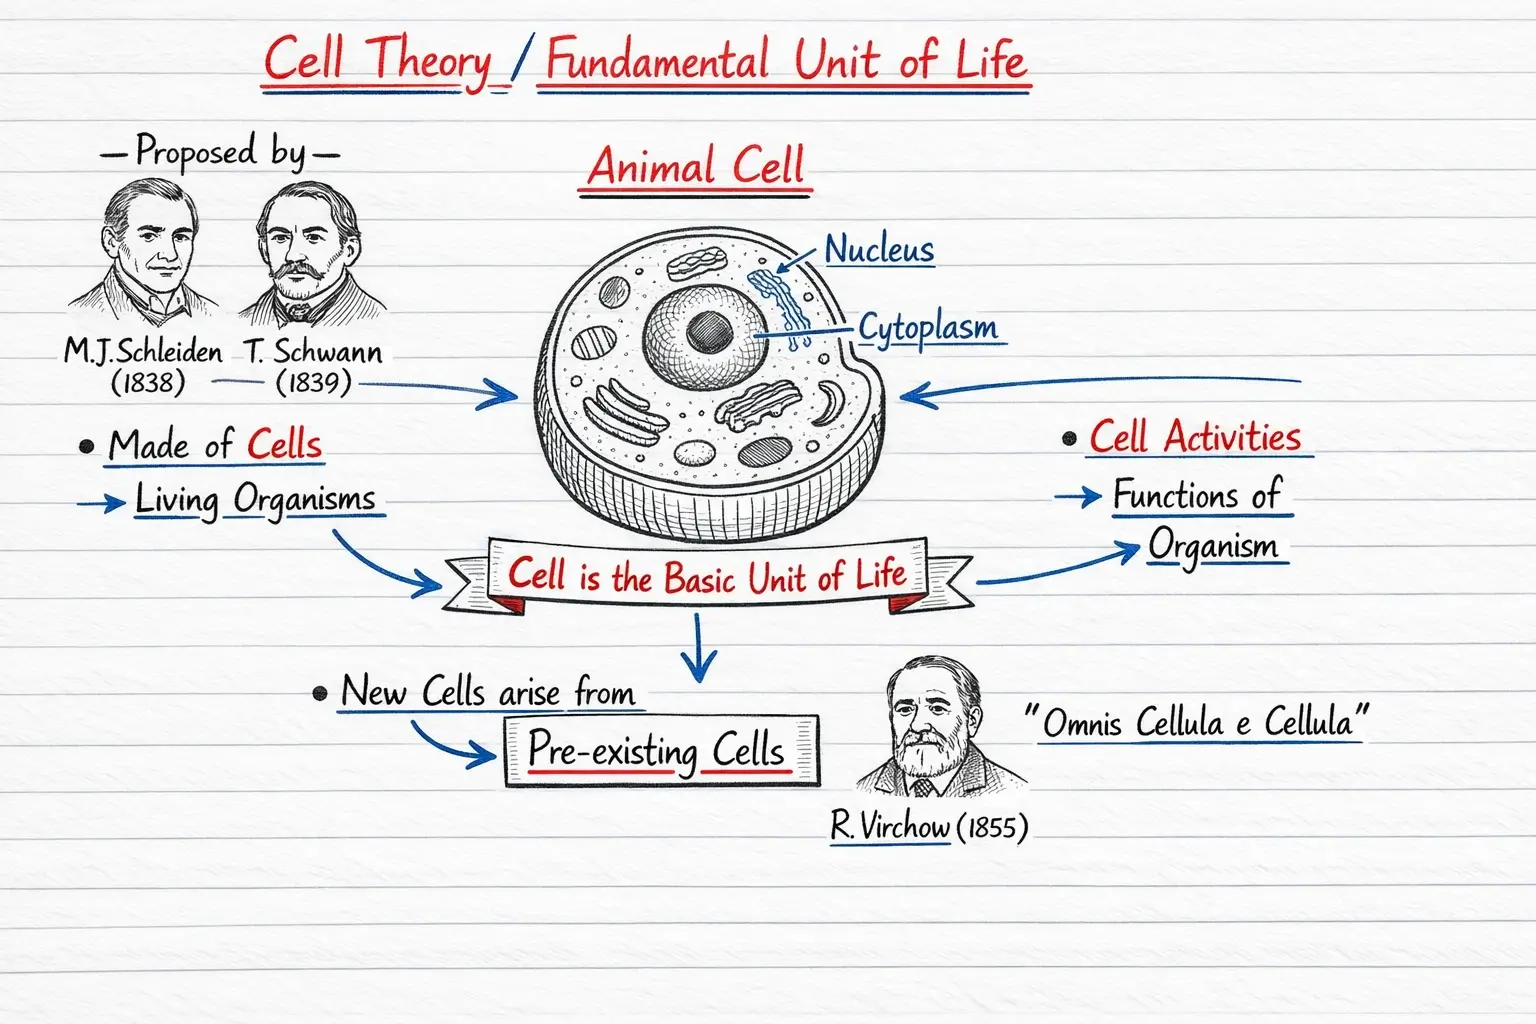 Cell Theory / Fundamental Unit of Life
— Proposed by —
M.J.Schleiden
(1838)
T. Schwann
(1839)
Animal Cell
Nucleus
Cytoplasm
• Made of Cells
Living Organisms
• Cell Activities
Functions of
Organism
Cell is the Basic Unit of Life
• New Cells arise from
Pre-existing Cells
R. Virchow (1855)
"Omnis Cellula e Cellula"